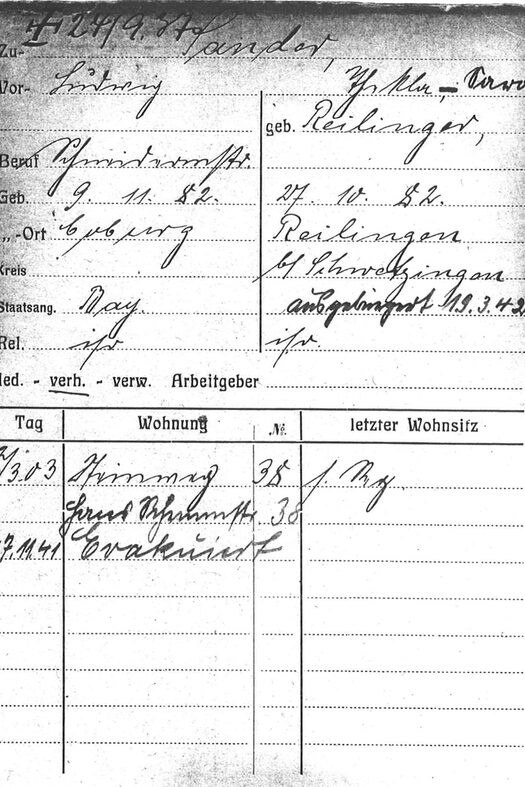 Zu- ✝ 24/9. 37 Sander,
Vor- Ludwig Thekla, - Sara
geb. Reilinger,
Beruf Schneidermstr.
Geb. 9. 11. 82. 27. 10. 82.
„ -Ort Coburg Reilingen
Kreis b/ Schwetzingen
Staatsang. Bay. ausgebürgert 19.3.42
Rel. isr isr.
led. - verh. - verw. Arbeitgeber
Tag Wohnung No. letzter Wohnsitz
/3.03 Steinweg 38 s. Rg.
Hans Schemmstr 38
7.11.41 Evakuiert